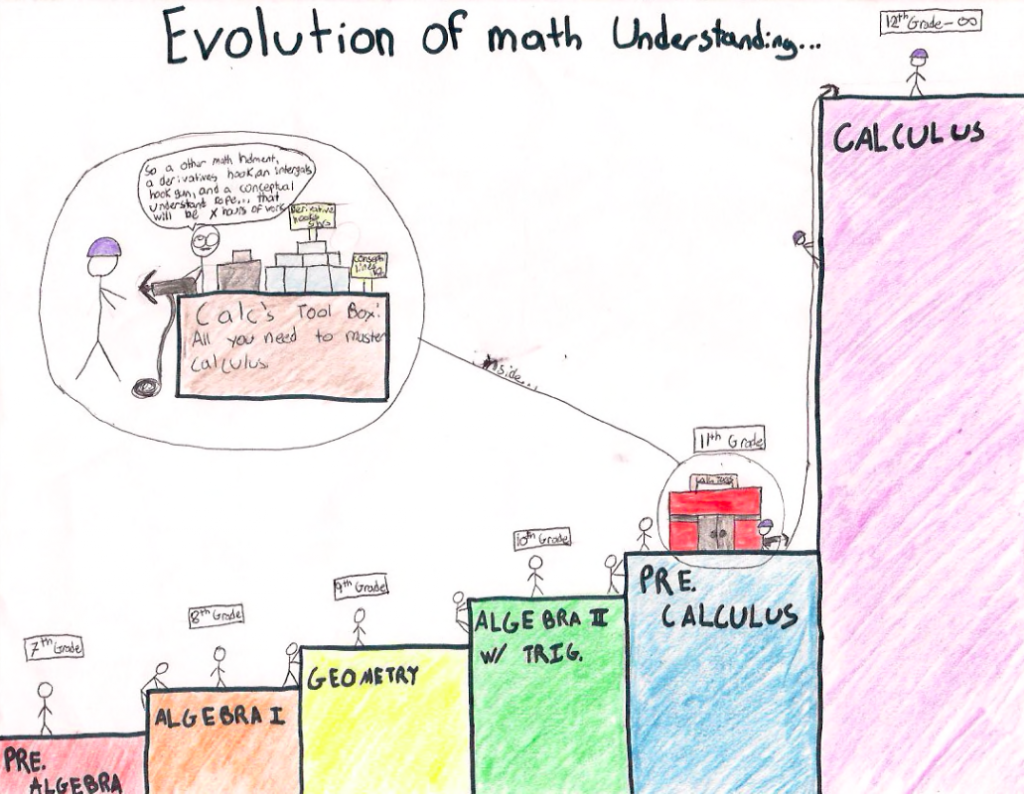 Evolution of math Understanding...
12th Grade - ∞
CALCULUS
So a other math
a derivatives hook, an intergals
hook gun, and a conceptual
understand rope... that
will be X hours of work
Derivative
hooks
Calc's Tool Box:
All you need to master
Calculus
inside...
11th Grade
10th Grade
9th Grade
8th Grade
7th Grade
PRE.
CALCULUS
ALGEBRA II
W/ TRIG.
GEOMETRY
ALGEBRA I
PRE.
ALGEBRA